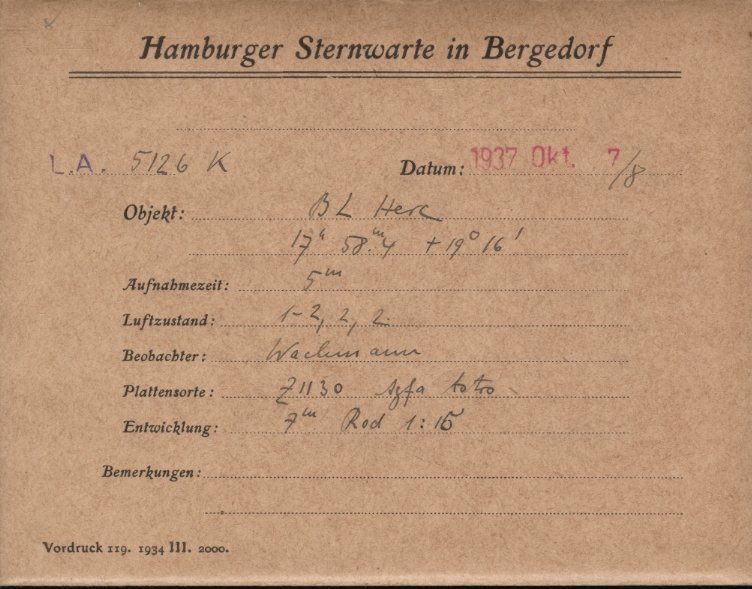 Hamburger Sternwarte in Bergedorf
L.A. 5126 K Datum: 1937 Okt. 7/8
Objekt: BL Herc
17ʰ 58.ᵐ4 +19° 16'
Aufnahmezeit: 5ᵐ
Luftzustand: 1-2, 2, 2
Beobachter: Wachmann
Plattensorte: Z1130 Agfa Astro
Entwicklung: 7ᵐ Rod 1:15
Bemerkungen:
Vordruck 119. 1934 III. 2000.